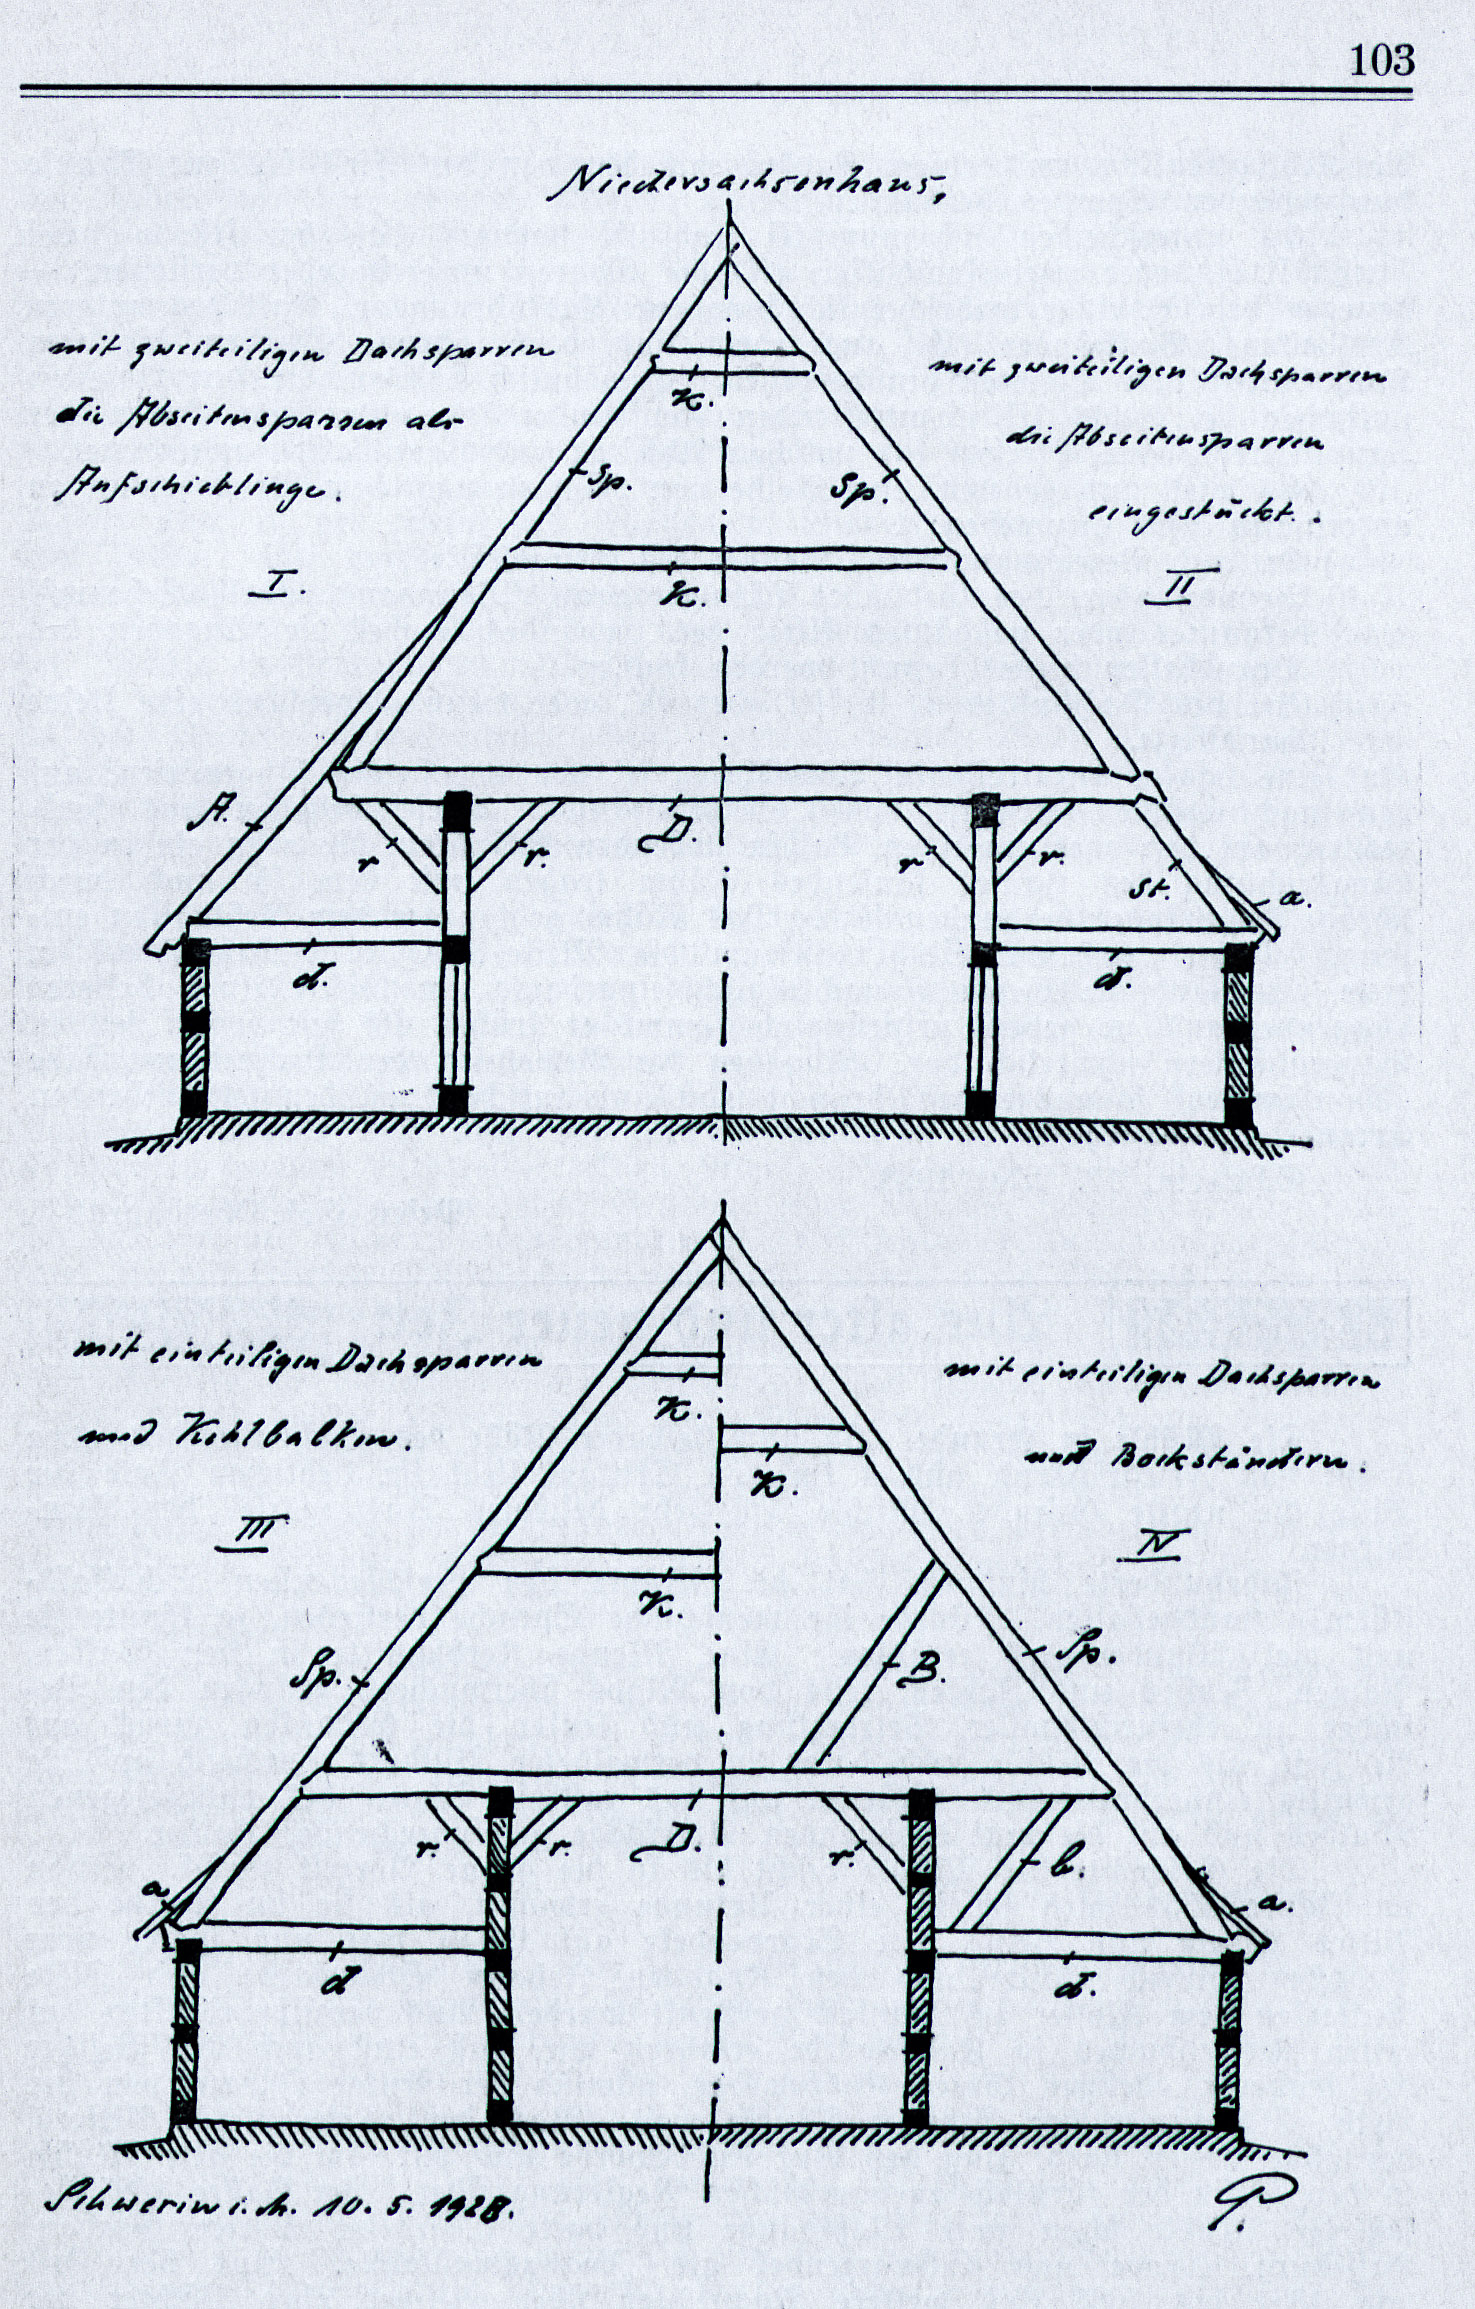 103
Niedersachsenhaus,
mit zweiteiligen Dachsparren
die Abseitensparren als
Aufschieblinge.
I.
mit zweiteiligen Dachsparren
die Abseitensparren
eingestückt.
II
K.
Sp.
Sp.
K.
A.
r
r.
D.
r
r.
St.
a.
d.
d.
mit einteiligen Dachsparren
und Kehlbalken.
III
mit einteiligen Dachsparren
und Bockständern.
IV
K.
K.
K.
Sp.
B.
Sp.
r.
r.
D.
r.
b.
a
a.
d
d.
Schwerin i. M. 10. 5. 1928.
P.